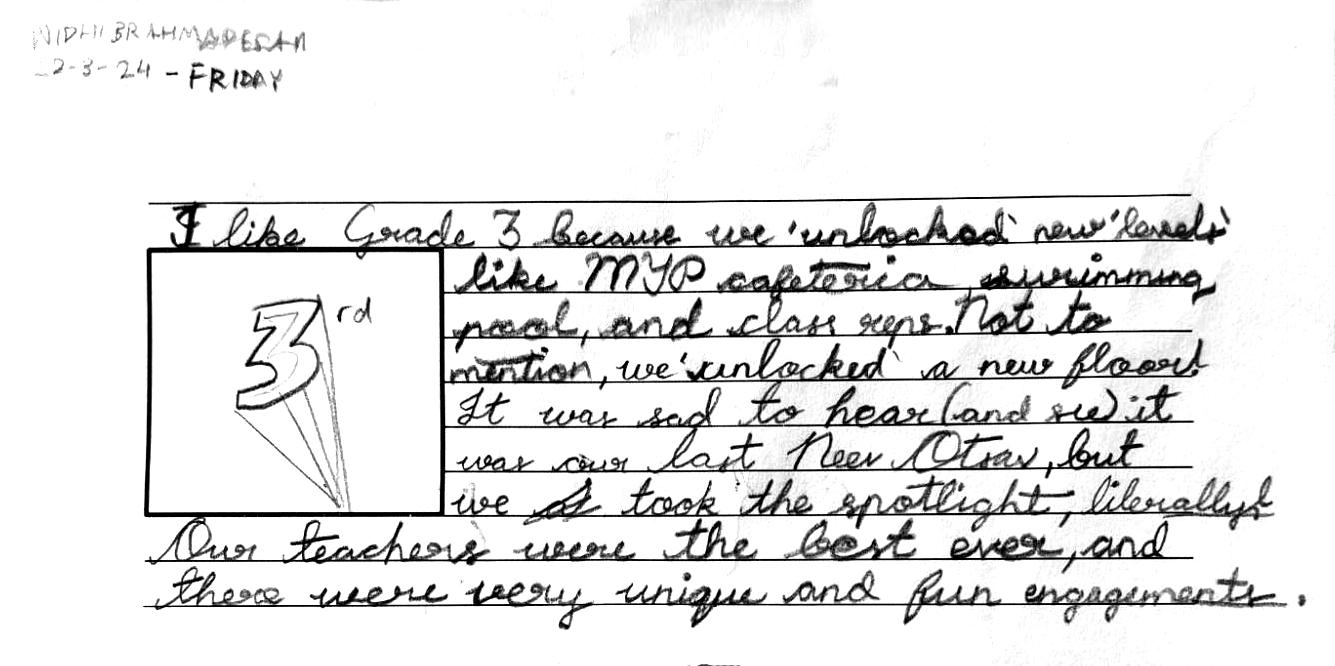 NIDHI BRAHMADESAM
22-3-24 - FRIDAY
I like Grade 3 because we 'unlocked' new 'levels'
like MYP cafeteria, swimming
3rd
pool, and class reps. Not to
mention, we 'unlocked' a new floor!
It was sad to hear (and see) it
was our last Neev Otsav, but
we took the spotlight, literally!
Our teachers were the best ever, and
there were very unique and fun engagements.